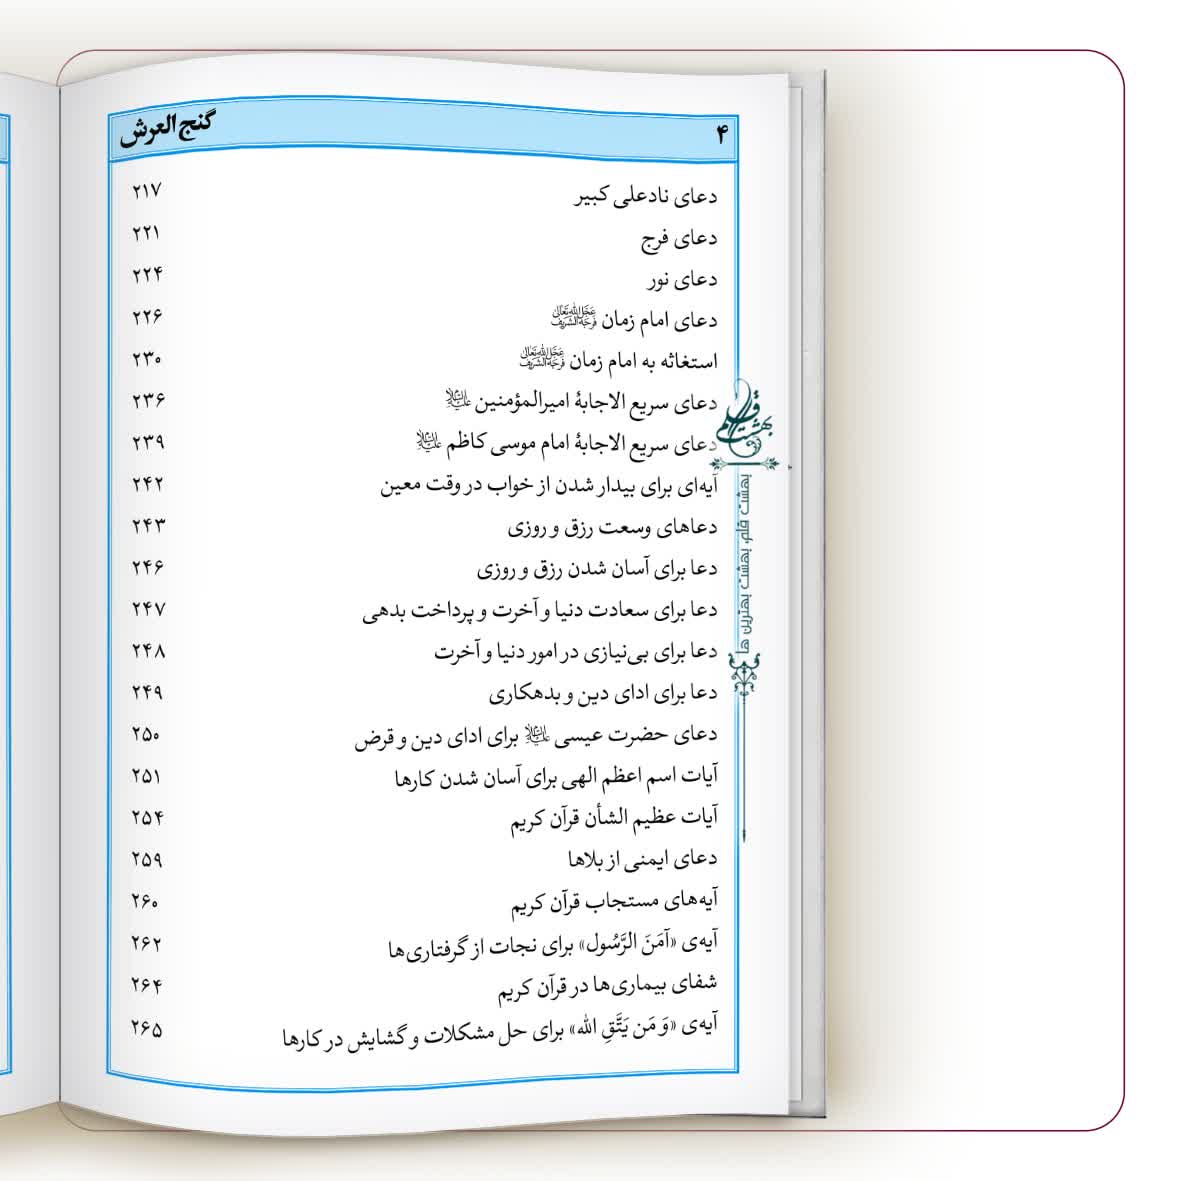 ۴ گنج العرش
دعای نادعلی کبیر ۲۱۷
دعای فرج ۲۲۱
دعای نور ۲۲۴
دعای امام زمان عَجَّلَ اللهُ تَعَالی فَرَجَهُ الشَّریف ۲۲۶
استغاثه به امام زمان عَجَّلَ اللهُ تَعَالی فَرَجَهُ الشَّریف ۲۳۰
دعای سریع الاجابهٔ امیرالمؤمنین علیه‌السلام ۲۳۶
دعای سریع الاجابهٔ امام موسی کاظم علیه‌السلام ۲۳۹
آیه‌ای برای بیدار شدن از خواب در وقت معین ۲۴۲
دعاهای وسعت رزق و روزی ۲۴۳
دعا برای آسان شدن رزق و روزی ۲۴۶
دعا برای سعادت دنیا و آخرت و پرداخت بدهی ۲۴۷
دعا برای بی‌نیازی در امور دنیا و آخرت ۲۴۸
دعا برای ادای دین و بدهکاری ۲۴۹
دعای حضرت عیسی علیه‌السلام برای ادای دین و قرض ۲۵۰
آیات اسم اعظم الهی برای آسان شدن کارها ۲۵۱
آیات عظیم الشأن قرآن کریم ۲۵۴
دعای ایمنی از بلاها ۲۵۹
آیه‌های مستجاب قرآن کریم ۲۶۰
آیه‌ی «آمَنَ الرَّسُول» برای نجات از گرفتاری‌ها ۲۶۲
شفای بیماری‌ها در قرآن کریم ۲۶۴
آیه‌ی «وَ مَن یَتَّقِ الله» برای حل مشکلات و گشایش در کارها ۲۶۵
بهشت قلم
بهشت قلم، بهشت بهترین ها